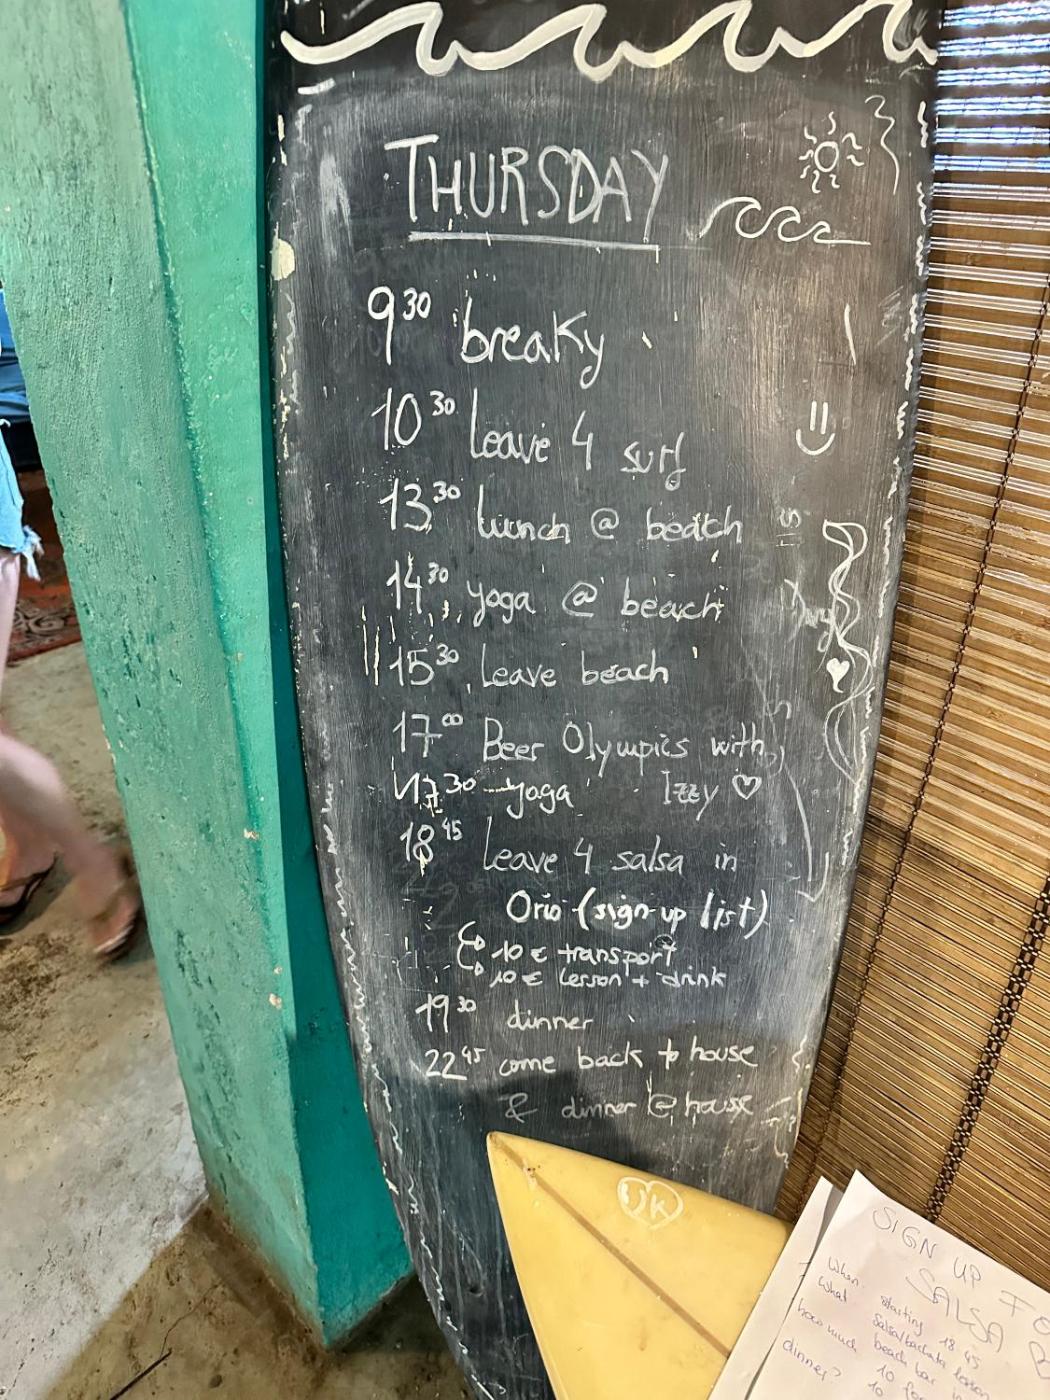 THURSDAY
9 30 breaky
10 30 Leave 4 surf
13 30 Lunch @ beach
14 30 yoga @ beach
15 30 Leave beach
17 00 Beer Olympics with
17 30 yoga Izzy ♡
18 45 Leave 4 salsa in
Orio (sign-up list)
10 € transport
10 € Lesson + drink
19 30 dinner
22 45 come back to house
& dinner @ house
UK
SIGN UP
SALSA
When starting 18 45
What
how much beach bar
dinner? 10